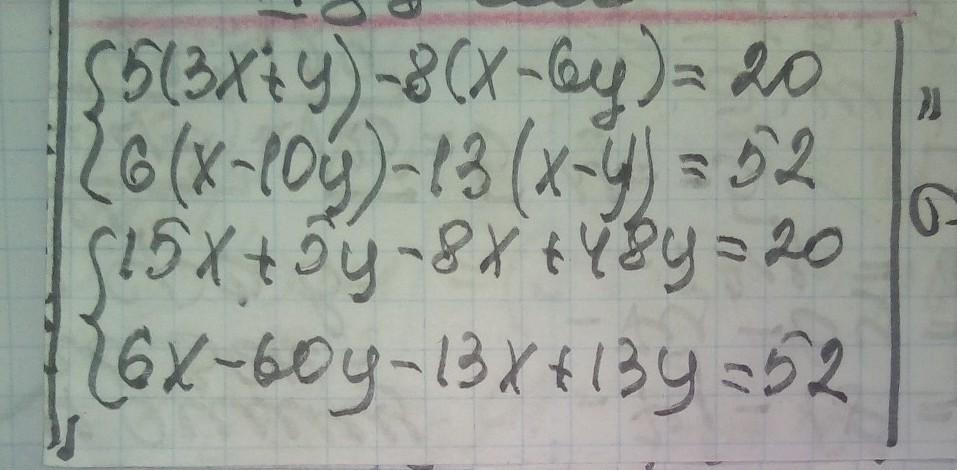 5(3x+y)-8(x-6y)=20
6(x-10y)-13(x-y)=52
15x+5y-8x+48y=20
6x-60y-13x+13y=52